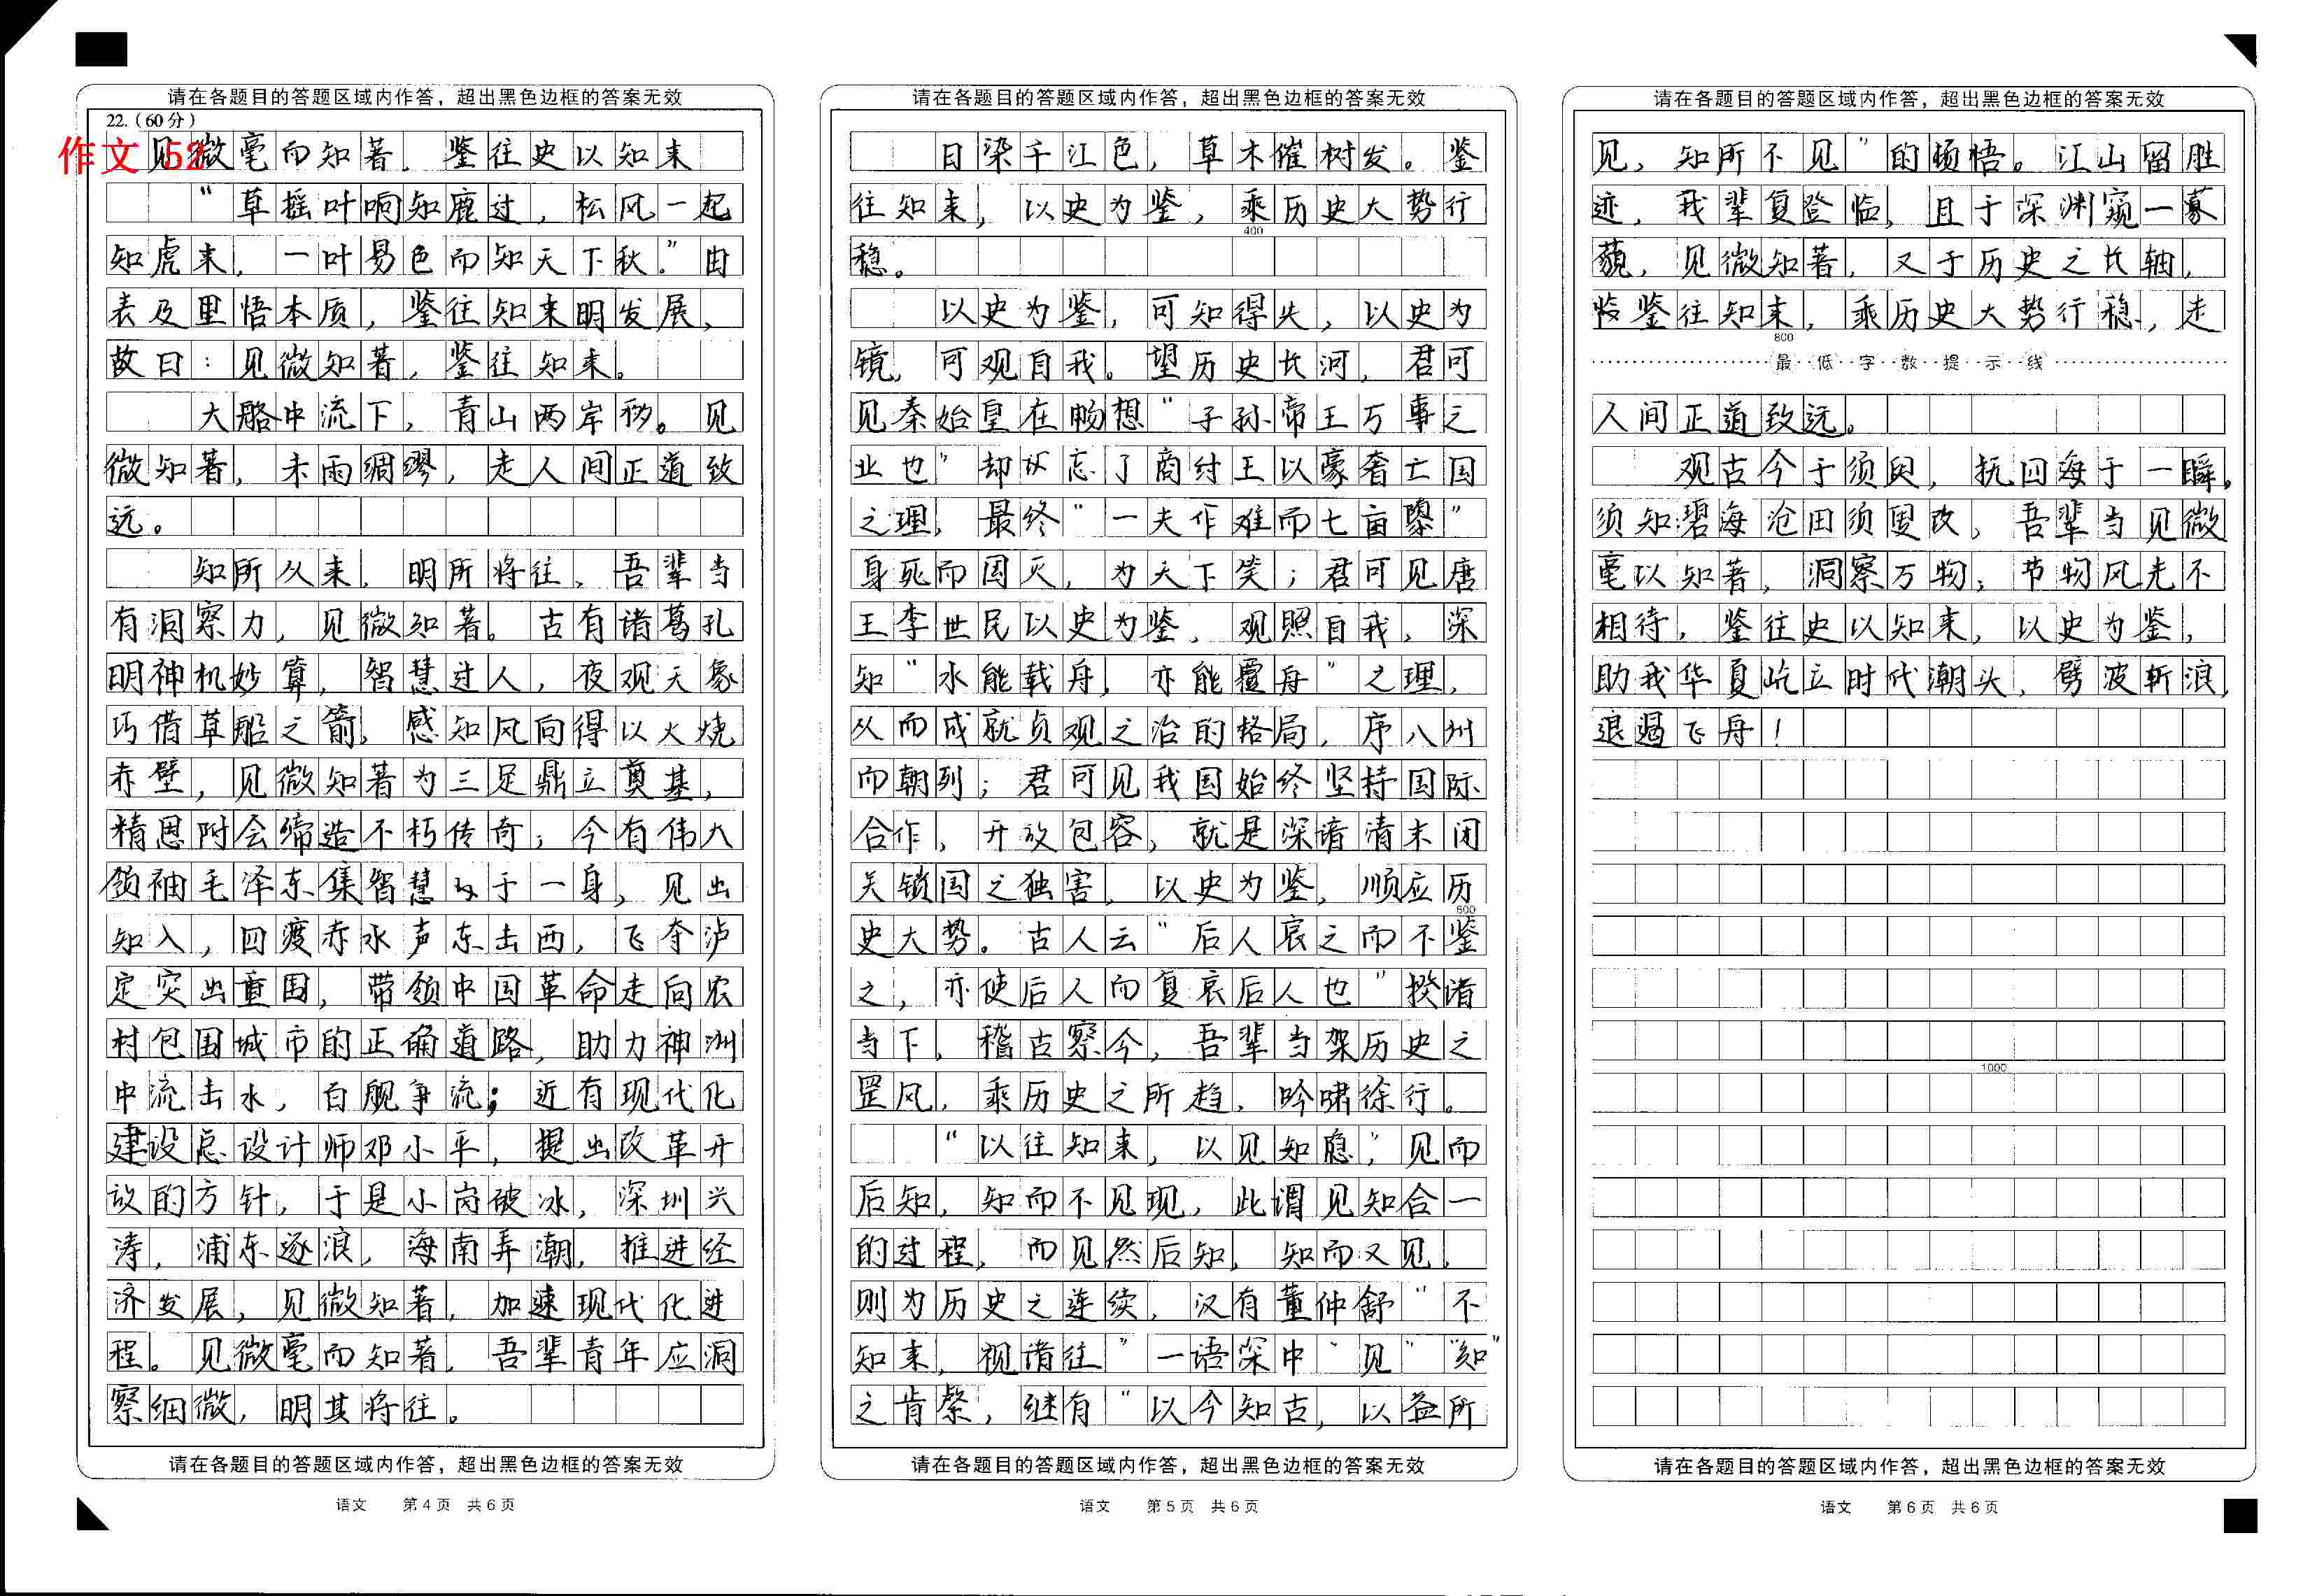 请在各题目的答题区域内作答，超出黑色边框的答案无效
22.（60分）
作文 52
见微毫而知著，鉴往史以知来
“草摇叶响知鹿过，松风一起
知虎来，一叶易色而知天下秋。”由
表及里悟本质，鉴往知来明发展，
故曰：见微知著，鉴往知来。
大船中流下，青山两岸移。见
微知著，未雨绸缪，走人间正道致
远。
知所从来，明所将往，吾辈当
有洞察力，见微知著。古有诸葛孔
明神机妙算，智慧过人，夜观天象
巧借草船之箭，感知风向得以火烧
赤壁，见微知著为三足鼎立奠基，
精思附会缔造不朽传奇；今有伟大
领袖毛泽东集智慧于一身，见出
知入，四渡赤水声东击西，飞夺泸
定突出重围，带领中国革命走向农
村包围城市的正确道路，助力神洲
中流击水，百舰争流；近有现代化
建设总设计师邓小平，提出改革开
放的方针，于是小岗破冰，深圳兴
涛，浦东逐浪，海南弄潮，推进经
济发展，见微知著，加速现代化进
程。见微毫而知著，吾辈青年应洞
察细微，明其将往。
请在各题目的答题区域内作答，超出黑色边框的答案无效
语文 第4页 共6页
请在各题目的答题区域内作答，超出黑色边框的答案无效
日染千江色，草木催树发。鉴
往知来，以史为鉴，乘历史大势行
400
稳。
以史为鉴，可知得失，以史为
镜，可观自我。望历史长河，君可
见秦始皇在畅想“子孙帝王万事之
业也”却忘了商纣王以豪奢亡国
之理，最终“一夫作难而七庙隳”
身死而国灭，为天下笑；君可见唐
王李世民以史为鉴，观照自我，深
知“水能载舟，亦能覆舟”之理，
从而成就贞观之治的格局，序八州
而朝列；君可见我国始终坚持国际
合作，开放包容，就是深谙清末闭
关锁国之独害，以史为鉴，顺应历
600
史大势。古人云“后人哀之而不鉴
之，亦使后人而复哀后人也”揆诸
当下，稽古察今，吾辈当架历史之
罡风，乘历史之所趋，吟啸徐行。
“以往知来，以见知隐，”见而
后知，知而不见现，此谓见知合一
的过程，而见然后知，知而又见，
则为历史之连续，汉有董仲舒“不
知来，视诸往”一语深中“见”“知”
之肯綮，继有“以今知古，以益所
请在各题目的答题区域内作答，超出黑色边框的答案无效
语文 第5页 共6页
请在各题目的答题区域内作答，超出黑色边框的答案无效
见，知所不见”的顿悟。江山留胜
迹，我辈复登临，且于深渊窥一豪
藐，见微知著，又于历史之长轴，
鉴往知来，乘历史大势行稳，走
800
最低字数提示线
人间正道致远。
观古今于须臾，抚四海于一瞬。
须知碧海沧田须臾改，吾辈当见微
毫以知著，洞察万物；节物风光不
相待，鉴往史以知来，以史为鉴，
助我华夏屹立时代潮头，劈波斩浪，
退遏飞舟！
1000
请在各题目的答题区域内作答，超出黑色边框的答案无效
语文 第6页 共6页